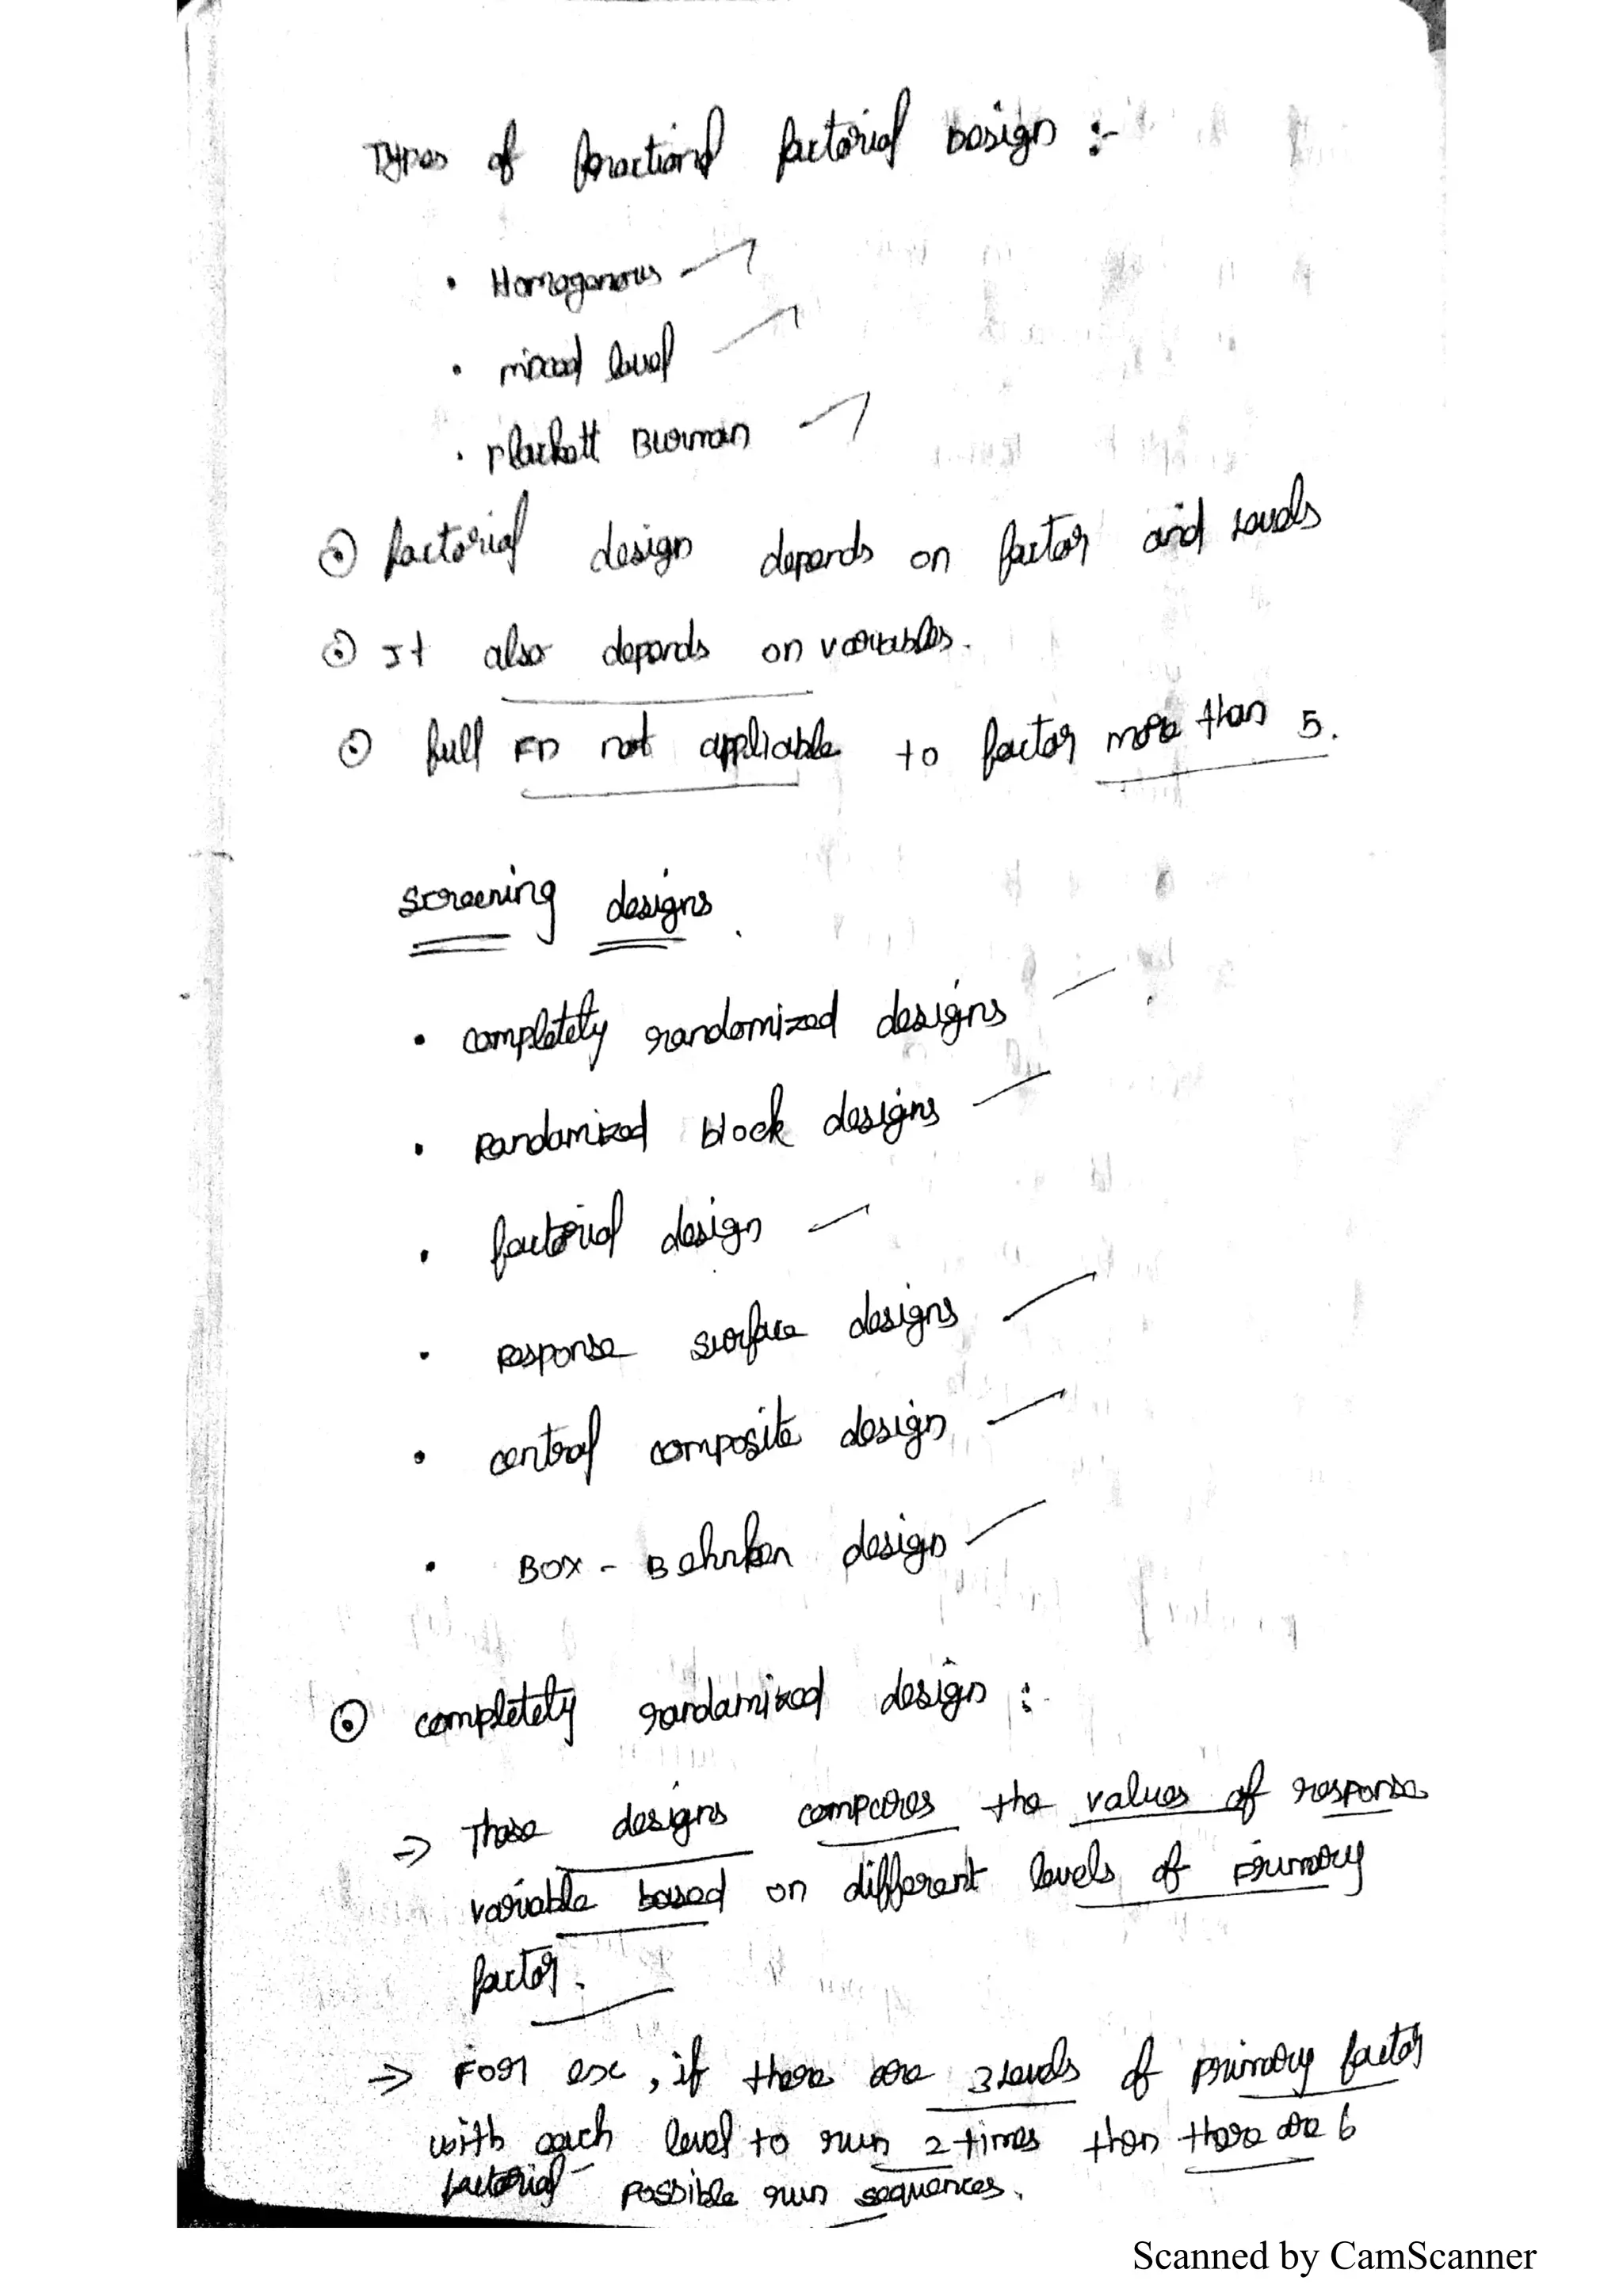 Types of fractional factorial Design :-
• Homogenous
• mixed level
• Plackett Burman
⊙ factorial design depends on factor and Levels
⊙ It also depends on variables.
⊙ full FD not appliable to factor more than 5.
screening designs.
• completely randomized designs
• Randamized block designs
• factorial design
• Response surface designs
• central composite design
• Box - Behnken design
⊙ completely randamized design :
⇒ These designs compares the values of response
variable based on different levels of primary
factor.
⇒ For ex, if there are 3 Levels of primary factor
with each level to run 2 times then there are 6
factorial possible run sequences.
Scanned by CamScanner